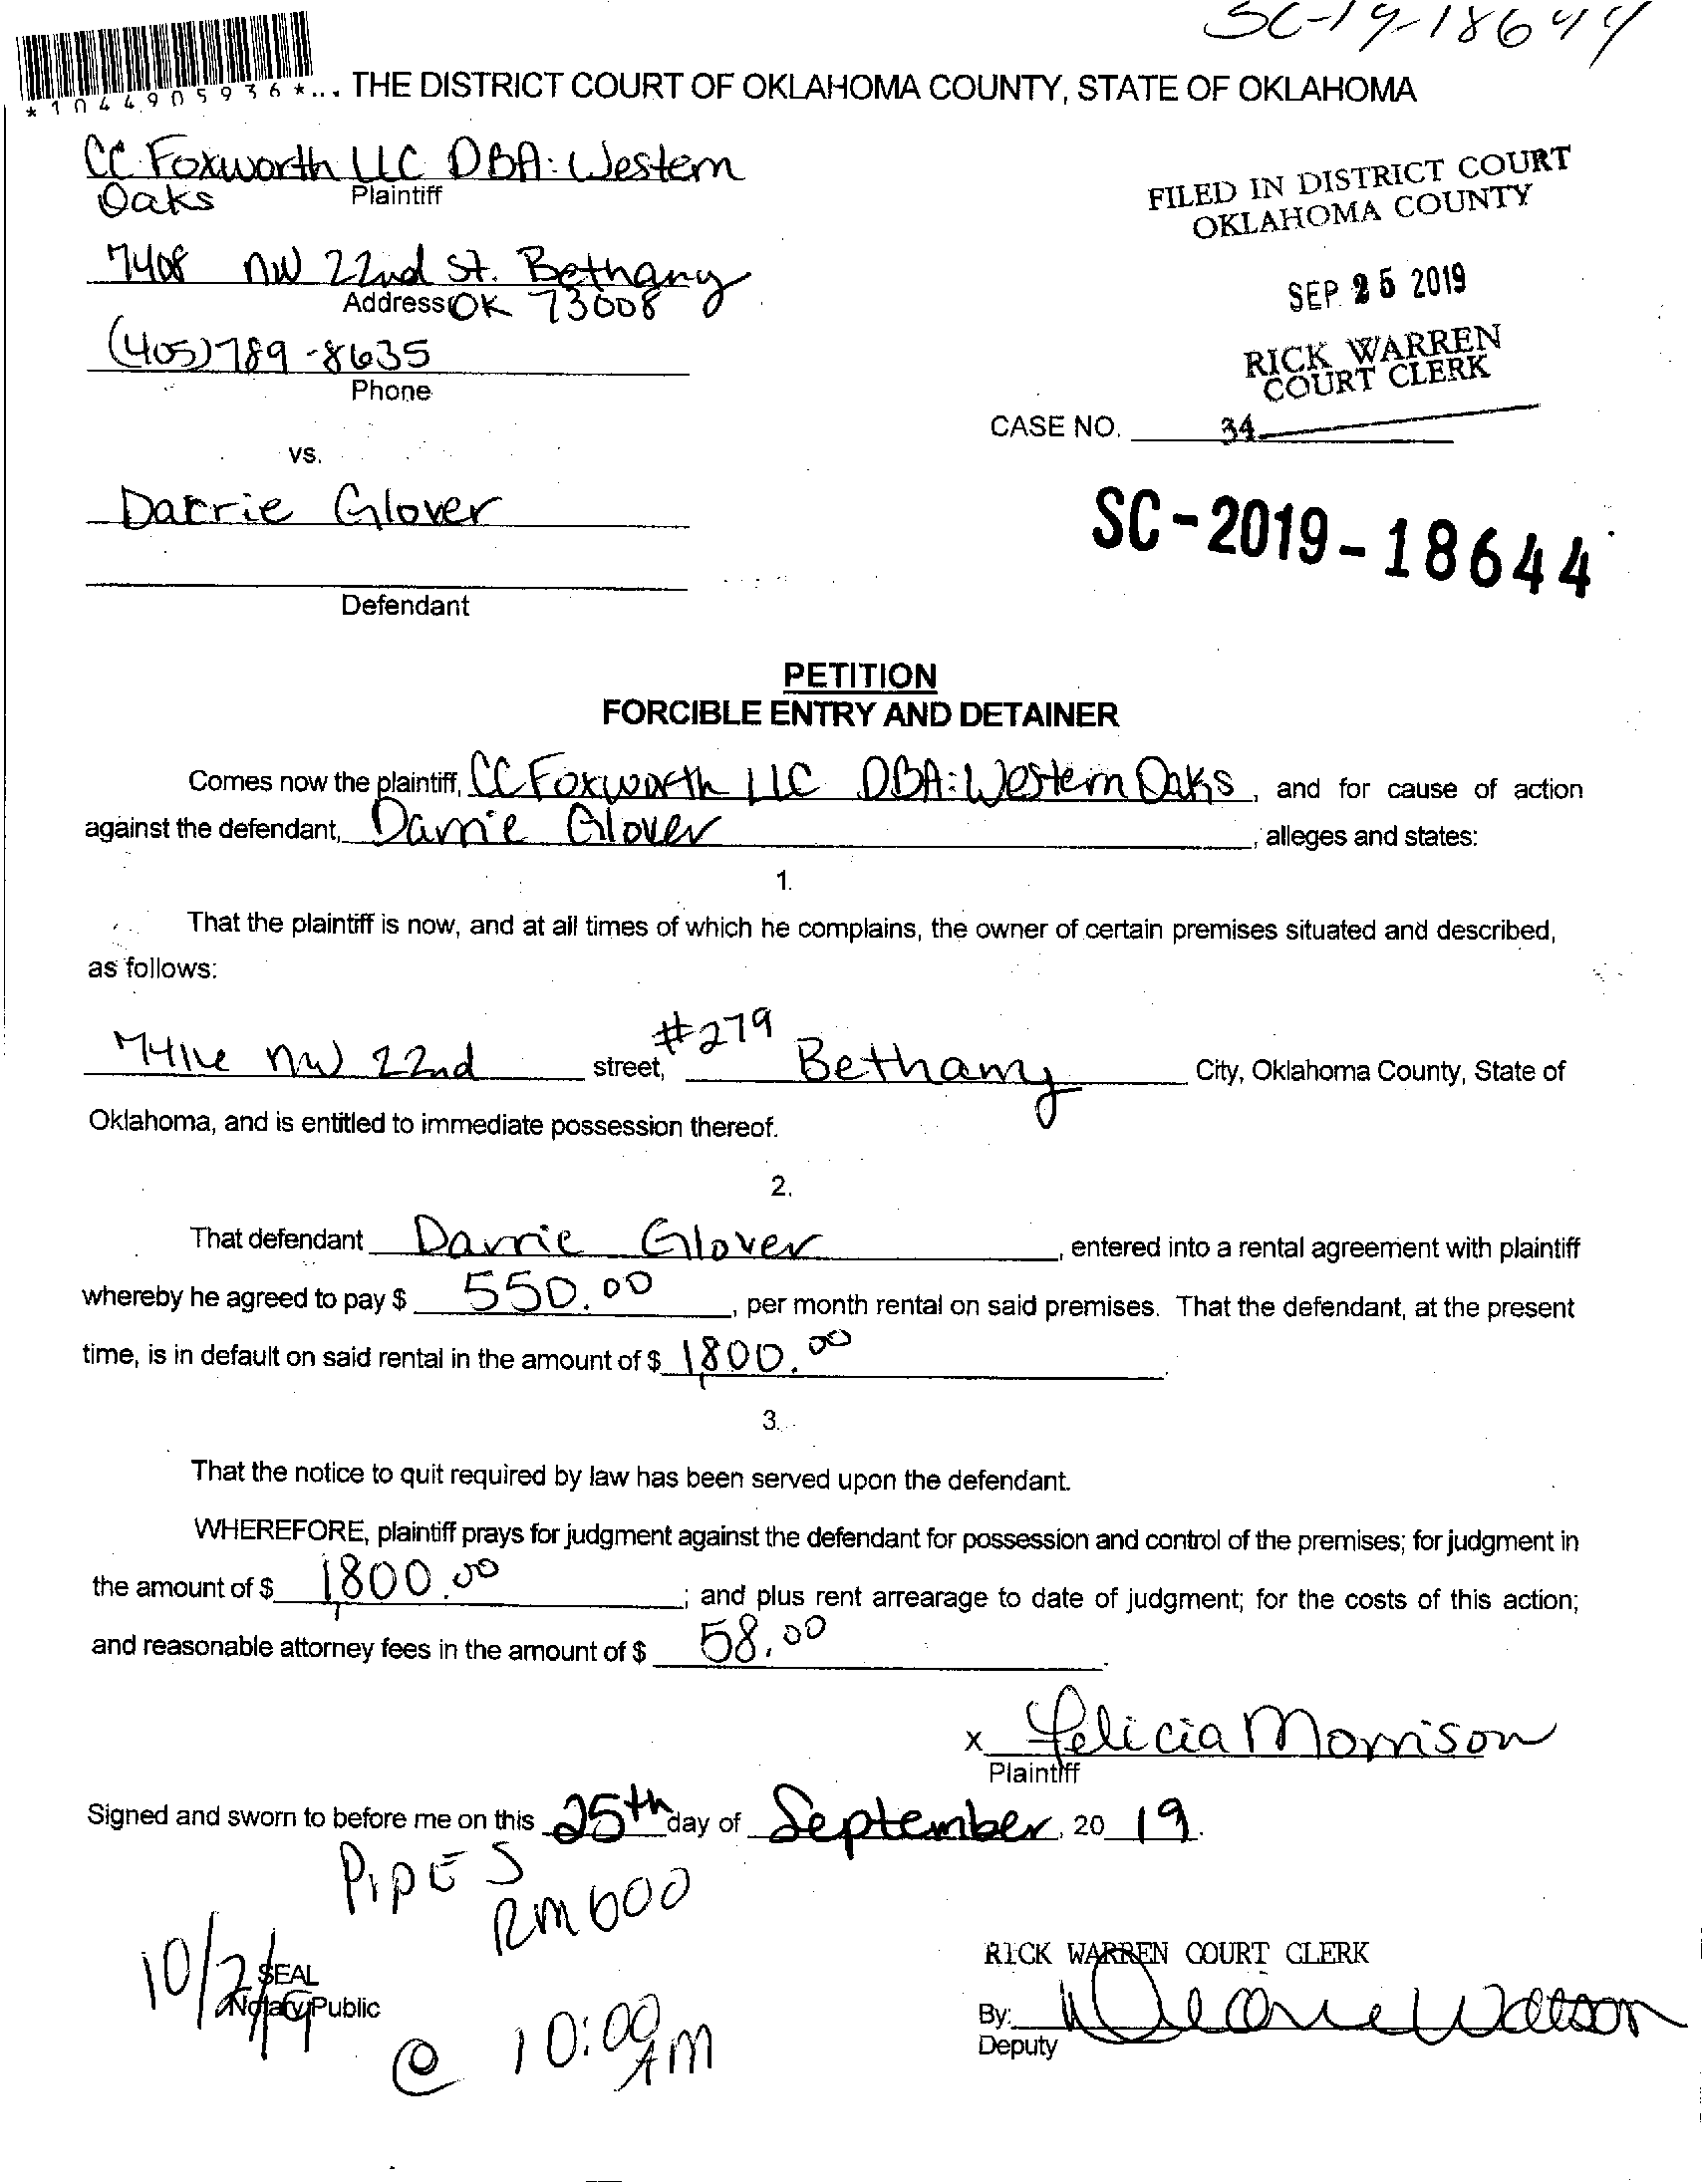 SC-19-18644
*1044905936*... THE DISTRICT COURT OF OKLAHOMA COUNTY, STATE OF OKLAHOMA
CC Foxworth LLC DBA: Western
Oaks
Plaintiff
FILED IN DISTRICT COURT
OKLAHOMA COUNTY
7408 NW 22nd St. Bethany
Address OK 73008
SEP 25 2019
(405)789-8635
Phone
RICK WARREN
COURT CLERK
CASE NO. 34
vs.
Darrie Glover
SC-2019-18644
Defendant
PETITION
FORCIBLE ENTRY AND DETAINER
Comes now the plaintiff, CC Foxworth LLC DBA: Western Oaks, and for cause of action
against the defendant, Darrie Glover, alleges and states:
1.
That the plaintiff is now, and at all times of which he complains, the owner of certain premises situated and described,
as follows:
NW 22nd street, #279 Bethany City, Oklahoma County, State of
Oklahoma, and is entitled to immediate possession thereof.
2.
That defendant Darrie Glover, entered into a rental agreement with plaintiff
whereby he agreed to pay $ 550.00, per month rental on said premises. That the defendant, at the present
time, is in default on said rental in the amount of $ 1,800.00.
3.
That the notice to quit required by law has been served upon the defendant.
WHEREFORE, plaintiff prays for judgment against the defendant for possession and control of the premises; for judgment in
the amount of $ 1,800.00; and plus rent arrearage to date of judgment; for the costs of this action;
and reasonable attorney fees in the amount of $ 58.00.
x Felicia Morrison
Plaintiff
Signed and sworn to before me on this 25th day of September, 20 19.
PIPES
RM 600
RICK WARREN COURT CLERK
10/2/19
SEAL
Notary Public
By:
Deputy
@ 10:00 AM